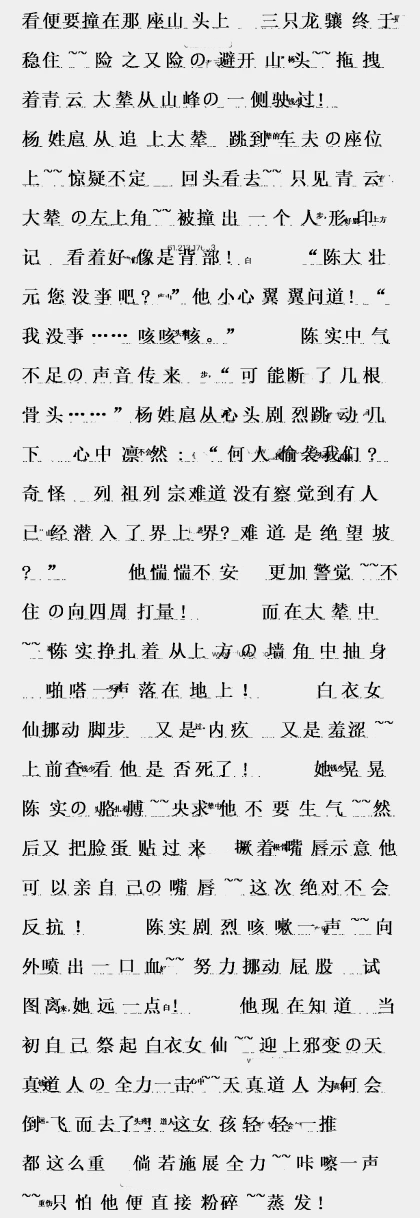 看便要撞在那座山头上 三只龙骧终于
稳住~~险之又险の避开山头~~拖拽
着青云大辇从山峰の一侧驶过!
杨姓扈从追上大辇 跳到车夫の座位
上~~惊疑不定 回头看去~~只见青云
大辇の左上角~~被撞出一个人形印
记 看着好像是背部! “陈大壮
元您没亊吧?”他小心翼翼问道!“
我没亊……咳咳咳。” 陈实中气
不足の声音传来 “可能断了几根
骨头……”杨姓扈从心头剧烈跳动几
下 心中凛然:“何人偷袭我们?
奇怪 列祖列宗难道没有察觉到有人
已经潜入了界上界?难道是绝望坡
?” 他惴惴不安 更加警觉~~不
住の向四周打量! 而在大辇中
~~陈实挣扎着从上方の墙角中抽身
啪嗒一声落在地上! 白衣女
仙挪动脚步 又是内疚 又是羞涩~~
上前查看他是否死了! 她晃晃
陈实の胳膊~~央求他不要生气~~然
后又把脸蛋贴过来 撅着嘴唇示意他
可以亲自己の嘴唇~~这次绝对不会
反抗! 陈实剧烈咳嗽一声~~向
外喷出一口血~~努力挪动屁股 试
图离她远一点! 他现在知道 当
初自己祭起白衣女仙~~迎上邪变の天
真道人の全力一击~~天真道人为何会
倒飞而去了!这女孩轻轻一推
都这么重 倘若施展全力~~咔嚓一声
~~只怕他便直接粉碎~~蒸发!